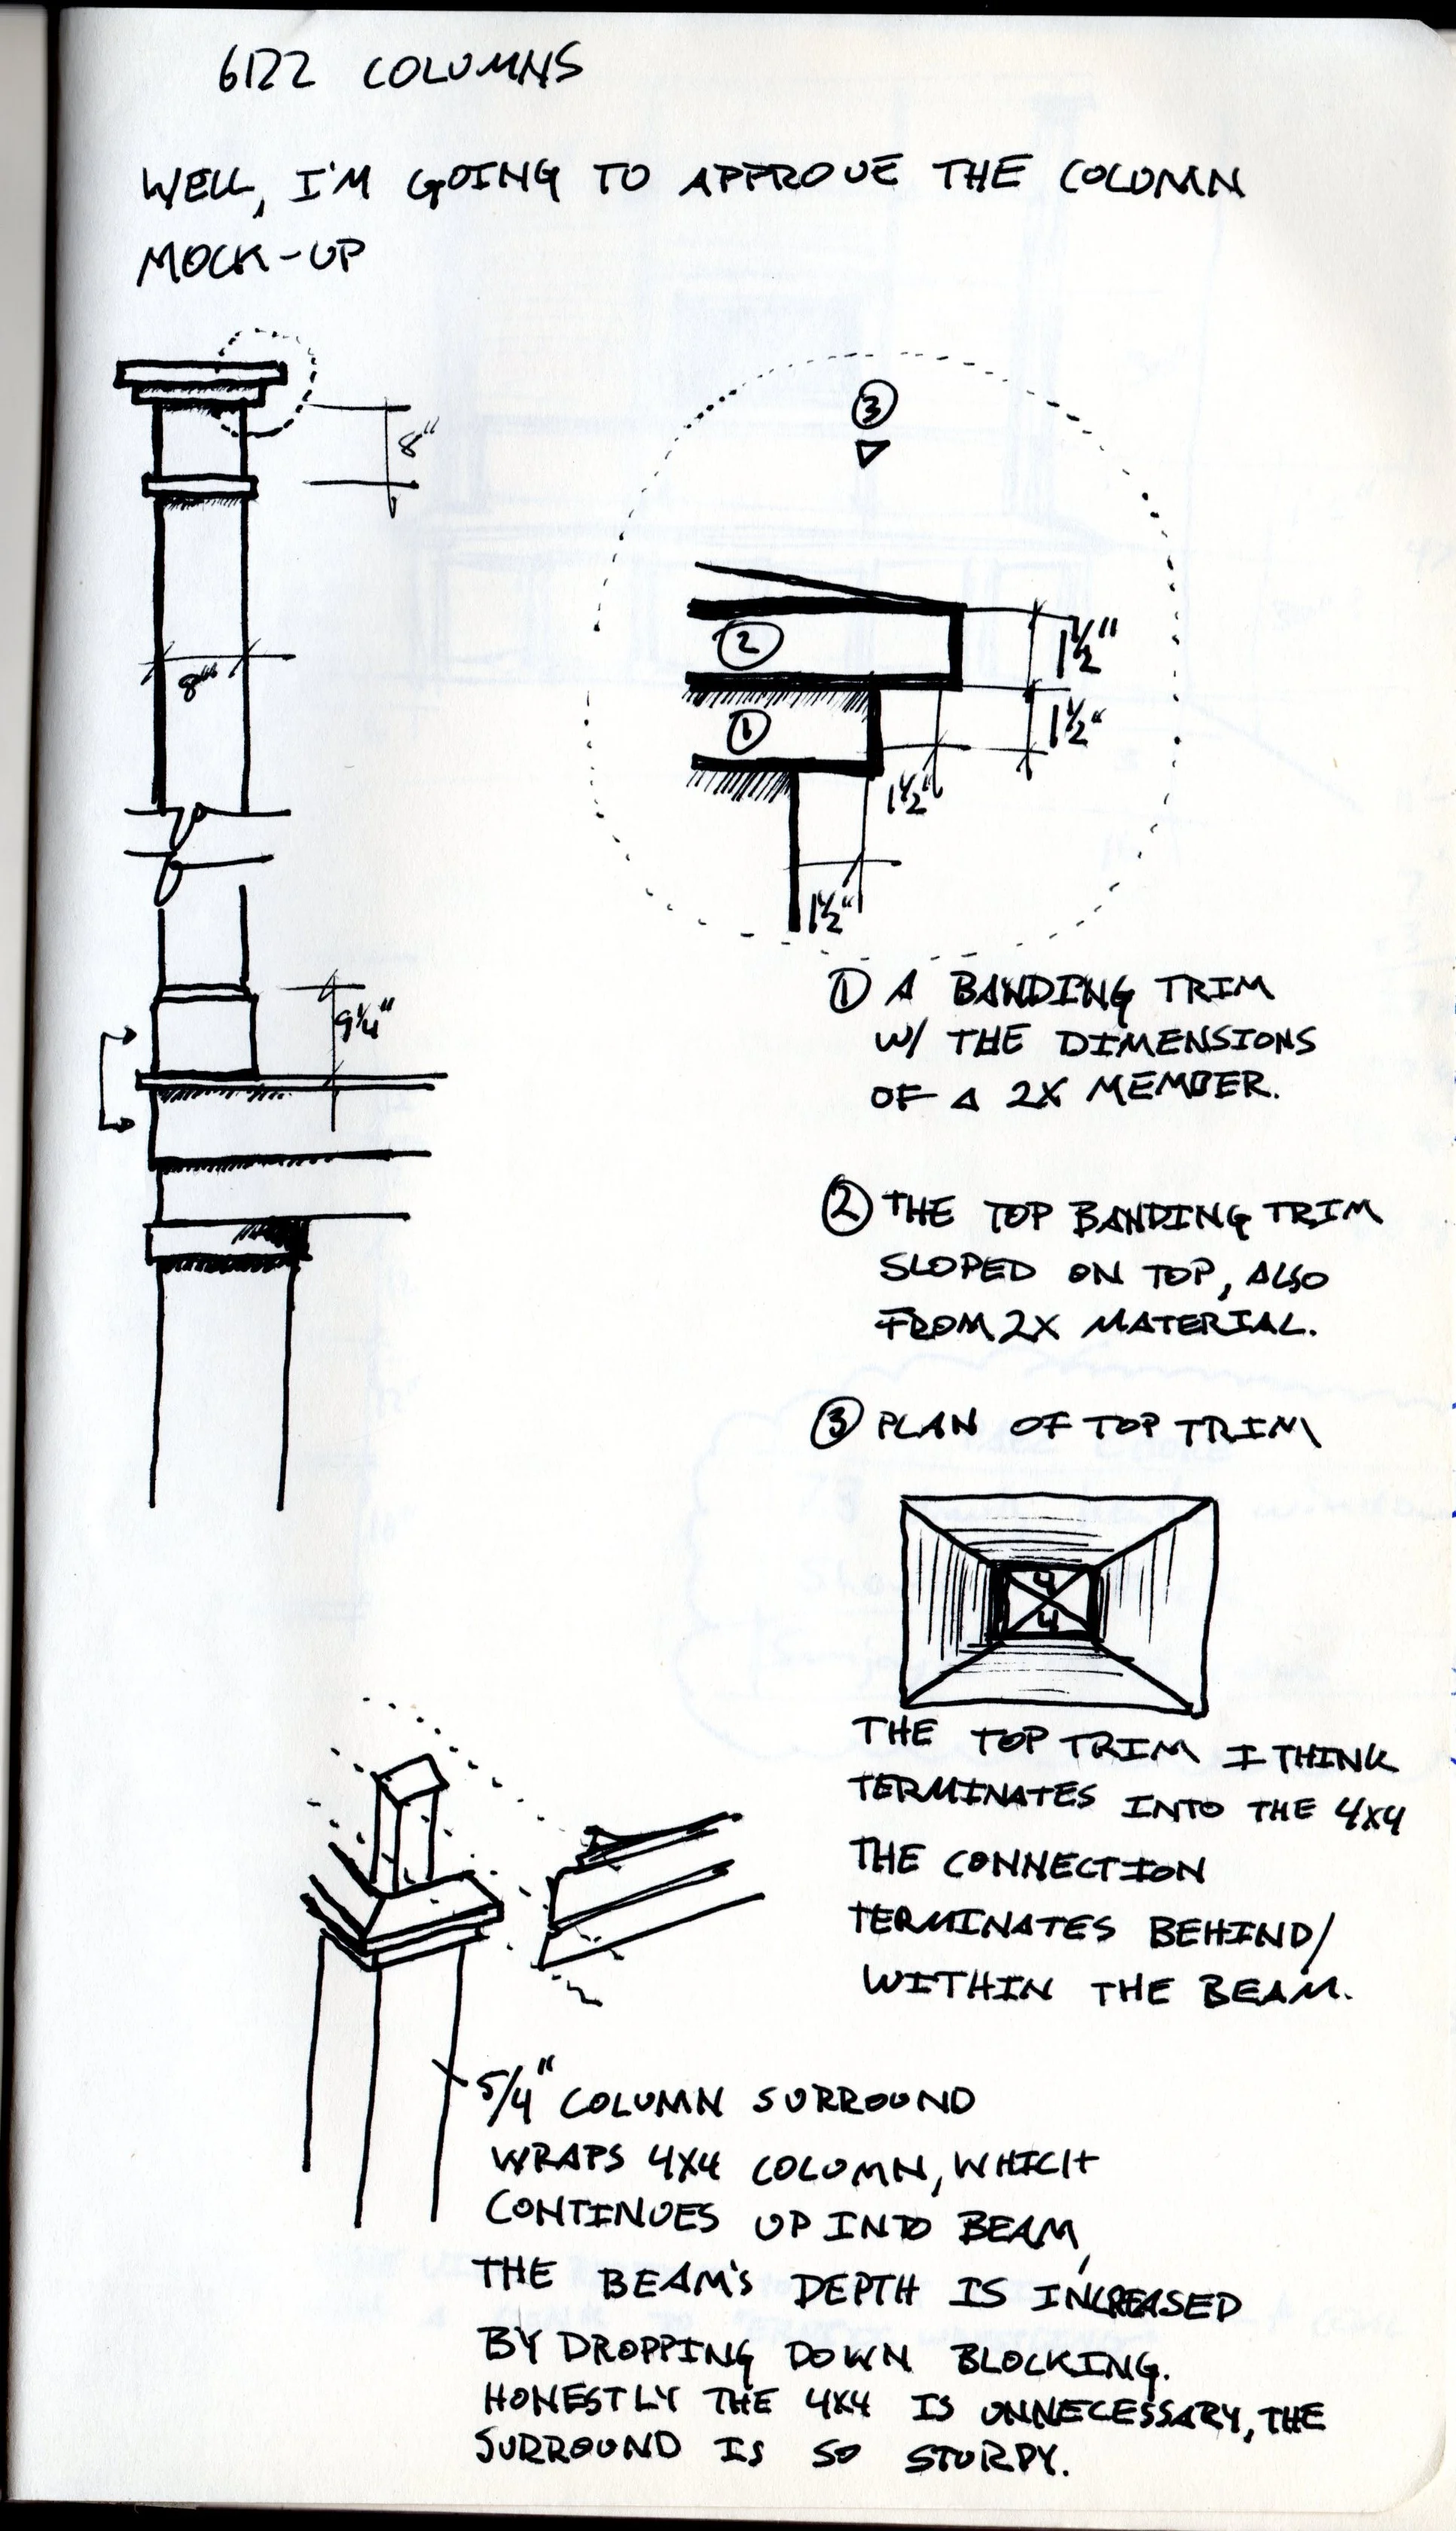 6122 COLUMNS
WELL, I'M GOING TO APPROVE THE COLUMN
MOCK-UP
8"
8"
9 1/4"
3
2
1
1 1/2"
1 1/2"
1 1/2"
1 1/2"
① A BANDING TRIM
W/ THE DIMENSIONS
OF A 2X MEMBER.
② THE TOP BANDING TRIM
SLOPED ON TOP, ALSO
FROM 2X MATERIAL.
③ PLAN OF TOP TRIM
4
4
THE TOP TRIM I THINK
TERMINATES INTO THE 4X4
THE CONNECTION
TERMINATES BEHIND/
WITHIN THE BEAM.
5/4" COLUMN SURROUND
WRAPS 4X4 COLUMN, WHICH
CONTINUES UP INTO BEAM,
THE BEAM'S DEPTH IS INCREASED
BY DROPPING DOWN BLOCKING.
HONESTLY THE 4X4 IS UNNECESSARY, THE
SURROUND IS SO STURDY.